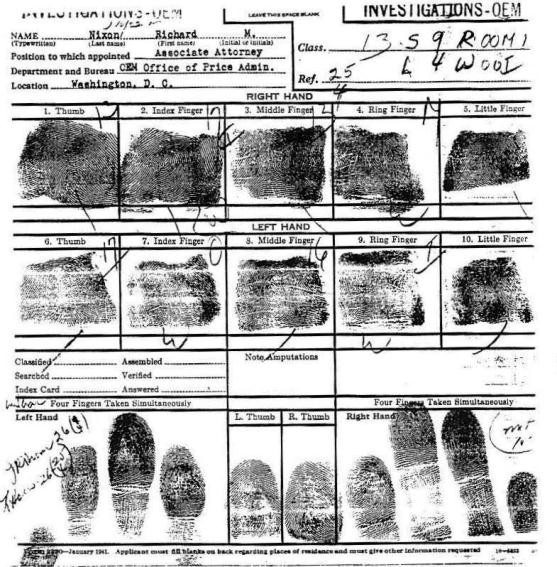 INVESTIGATIONS-OEM
LEAVE THIS SPACE BLANK
INVESTIGATIONS-OEM
NAME Nixon/ Richard M.
(Typewritten) (Last name) (First name) (Initial or initials)
Position to which appointed Associate Attorney
Department and Bureau OEM Office of Price Admin.
Location Washington, D. C.
Class. 13 S 9 R OOM I
L 4 W OOI
Ref. 25
4
RIGHT HAND
1. Thumb 2. Index Finger 3. Middle Finger 4. Ring Finger 5. Little Finger
LEFT HAND
6. Thumb 7. Index Finger 8. Middle Finger 9. Ring Finger 10. Little Finger
Classified Assembled
Searched Verified
Index Card Answered
Note Amputations
Four Fingers Taken Simultaneously
Four Fingers Taken Simultaneously
Left Hand L. Thumb R. Thumb Right Hand
January 1941. Applicant must fill blanks on back regarding places of residence and must give other information requested